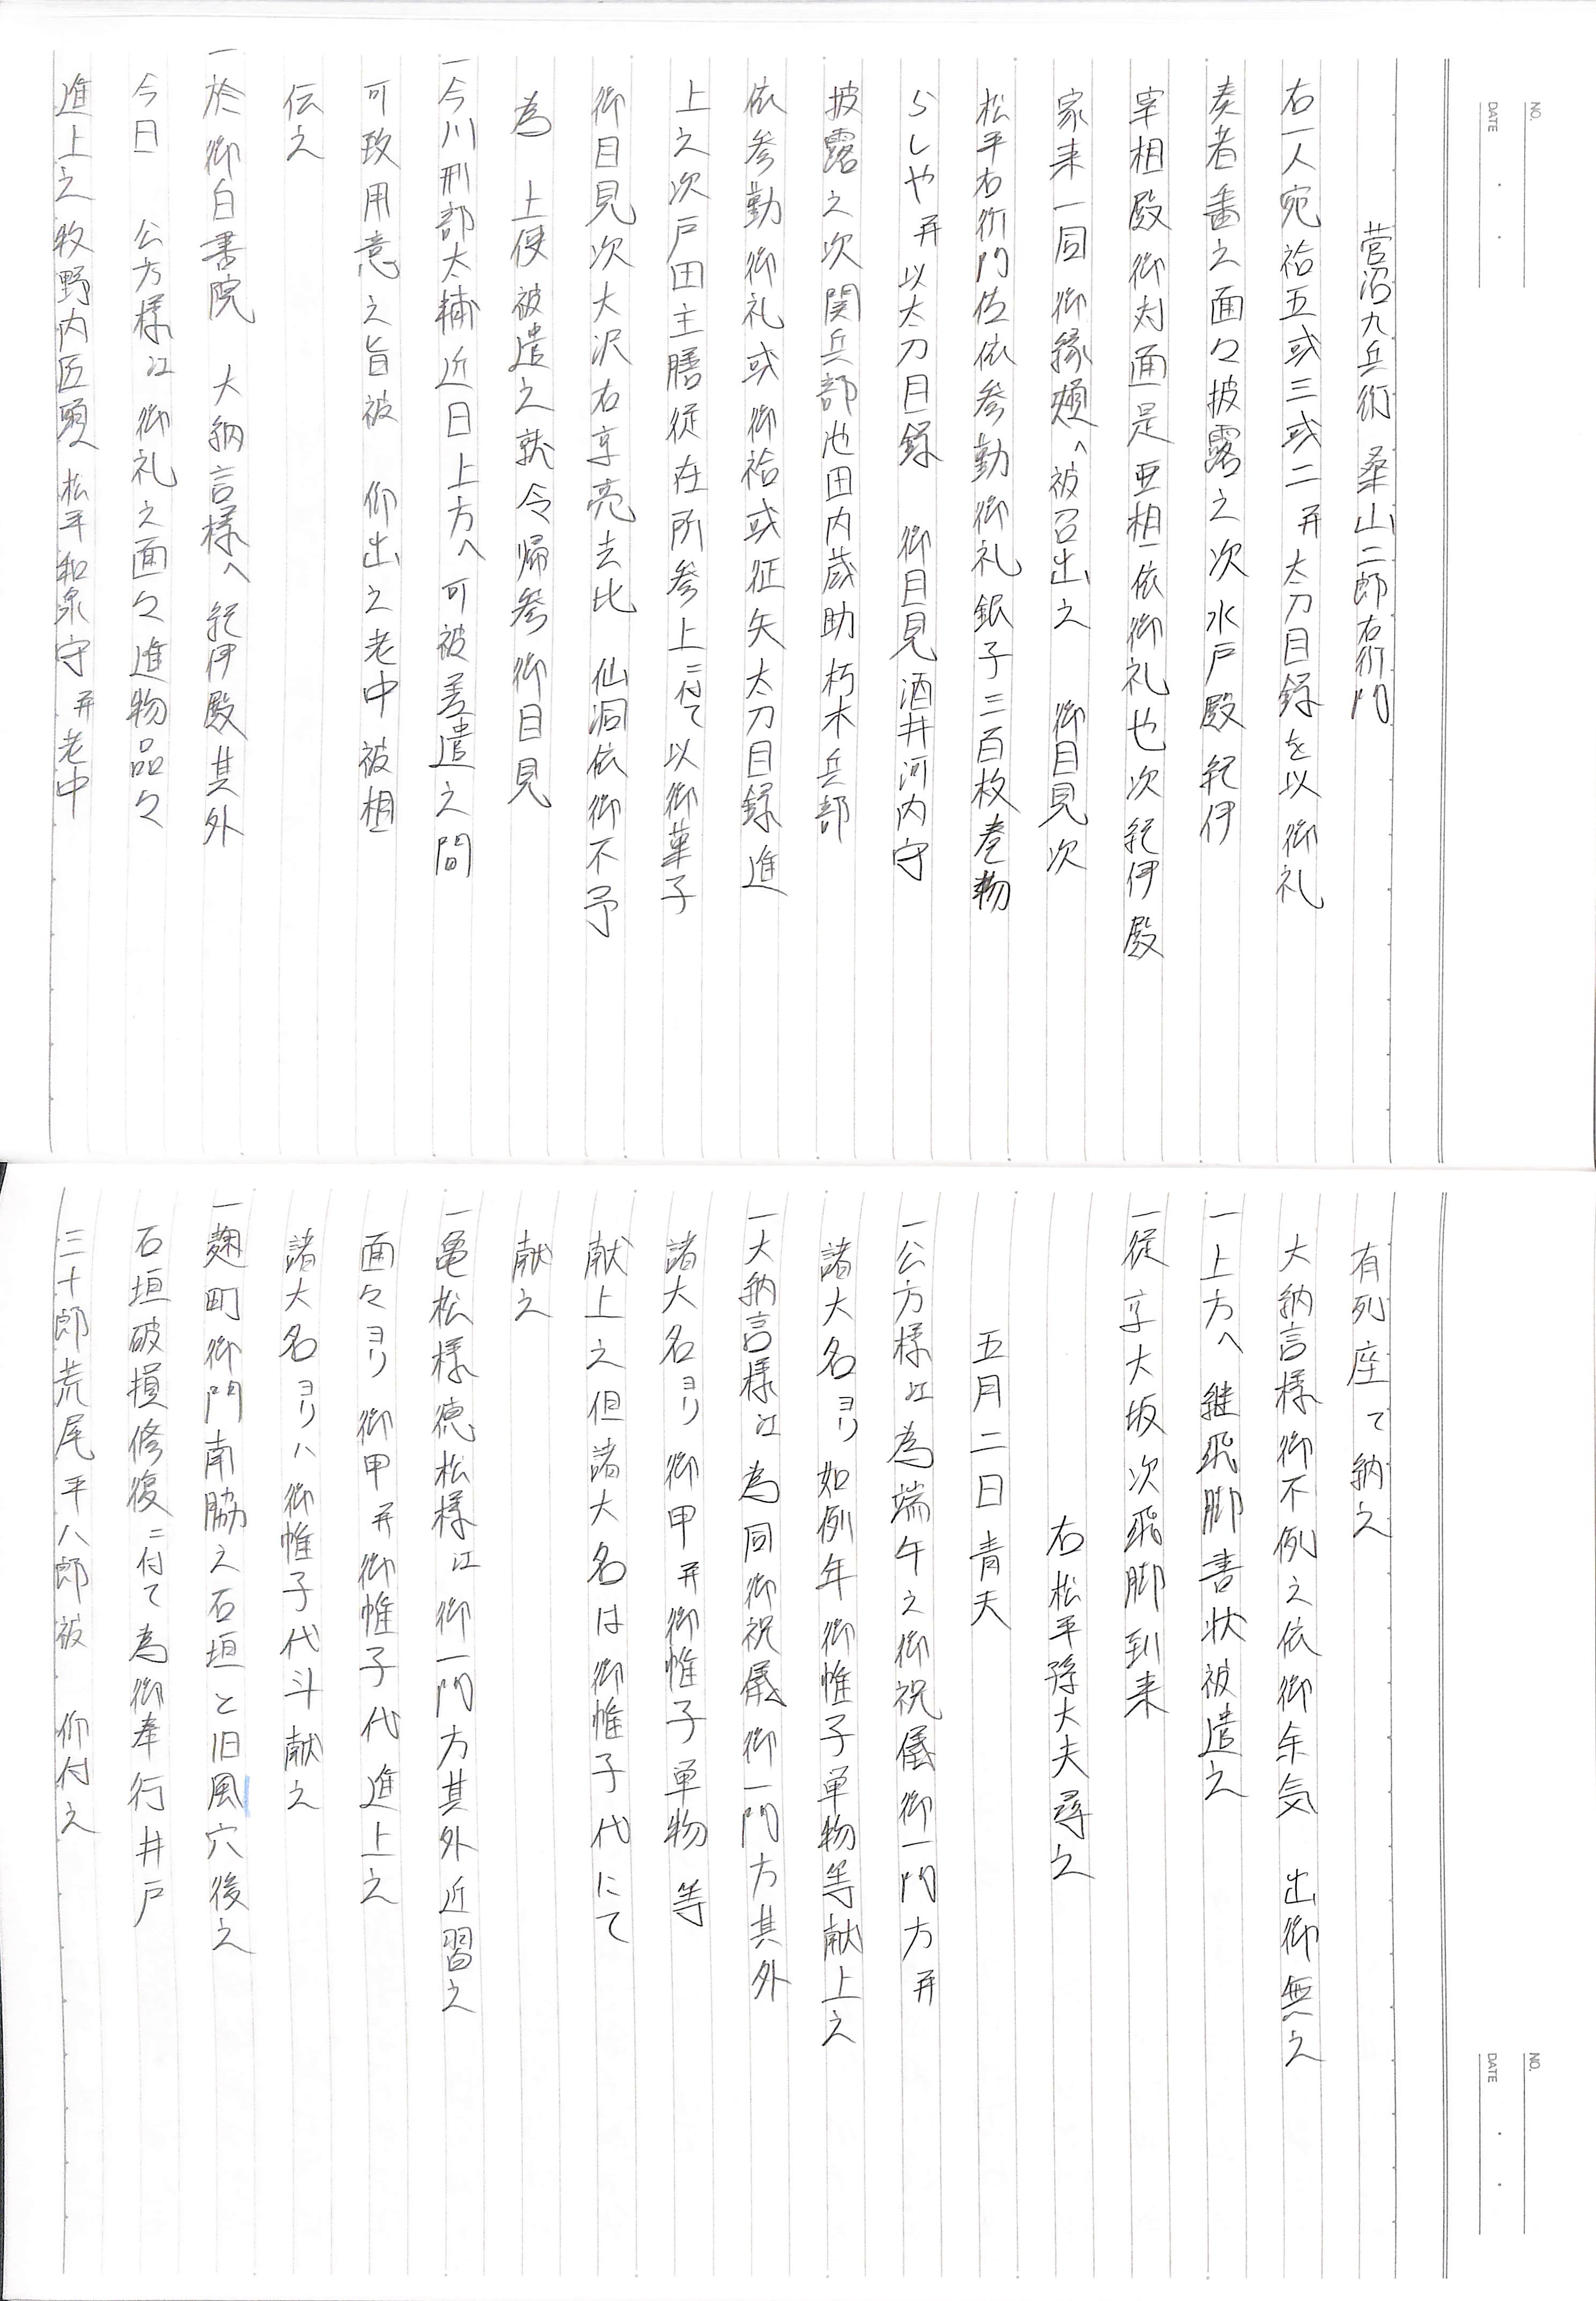 NO.
DATE
菅沼九兵衛 桑山二郎右衛門
右一人宛祫五或三或二并太刀目録を以御礼
奏者番之面々披露之次水戸殿紀伊
宰相殿御対面是亜相依御礼也次紀伊殿
家来一同御縁頬へ被召出之 御目見次
松平右衛門佐依参勤御礼銀子三百枚巻物
らしや并以太刀目録 御目見酒井河内守
披露之次関兵部池田内蔵助朽木兵部
依参勤御礼或御祫或征矢太刀目録進
上之次戸田主膳従在所参上ニ付て以御菓子
御目見次大沢右京亮去比 仙洞依御不予
為 上使被遣之就令帰参御目見
一今川刑部太輔近日上方へ可被差遣之間
可致用意之旨被 仰出之老中被相
伝之
一於御白書院 大納言様へ紀伊殿其外
今日 公方様江御礼之面々進物品々
進上之牧野内匠頭松平和泉守并老中
NO.
DATE
有列座て納之
大納言様御不例之依御余気 出御無之
一上方へ継飛脚書状被遣之
一従京大坂次飛脚到来
右松平孫大夫尋之
五月二日青天
一公方様江為端午之御祝儀御一門方并
諸大名ヨリ如例年御帷子単物等献上之
一大納言様江為同御祝儀御一門方其外
諸大名ヨリ御甲并御帷子単物等
献上之但諸大名は御帷子代にて
献之
一亀松様徳松様江御一門方其外近習之
面々ヨリ御甲并御帷子代進上之
諸大名ヨリハ御帷子代斗献之
一麹町御門南脇之石垣と旧風穴後之
石垣破損修復ニ付て為御奉行井戸
三十郎荒尾平八郎被 仰付之